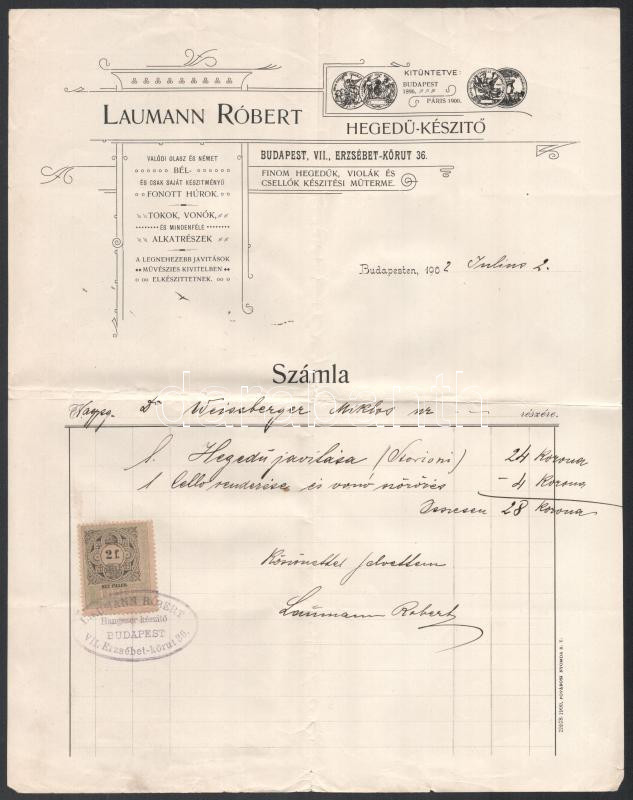 KITÜNTETVE:
BUDAPEST
1896.
PÁRIS 1900.
LAUMANN RÓBERT
HEGEDŰ-KÉSZITŐ
BUDAPEST, VII., ERZSÉBET-KÖRUT 36.
FINOM HEGEDŰK, VIOLÁK ÉS
CSELLÓK KÉSZITÉSI MŰTERME.
VALÓDI OLASZ ÉS NÉMET
BÉL-
ÉS CSAK SAJÁT KÉSZITMÉNYŰ
FONOTT HÚROK.
TOKOK, VONÓK,
ÉS MINDENFÉLE
ALKATRÉSZEK
A LEGNEHEZEBB JAVITÁSOK
MŰVÉSZIES KIVITELBEN
ELKÉSZITTETNEK.
Budapesten, 1902 Julius 2.
Számla
Nagysg. Dr Weissberger Miklos úr részére.
1. Hegedű javitása (Storioni) 24 Korona
1 Cello rendezése és vonó szőrözés – 4 Korona
Összesen 28 Korona
Köszönettel felvettem
Laumann Robert
2 f.
KÉT FILLÉR
LAUMANN RÓBERT
Hangszer készitő
BUDAPEST
VII. Erzsébet-körut 36.
darabanth